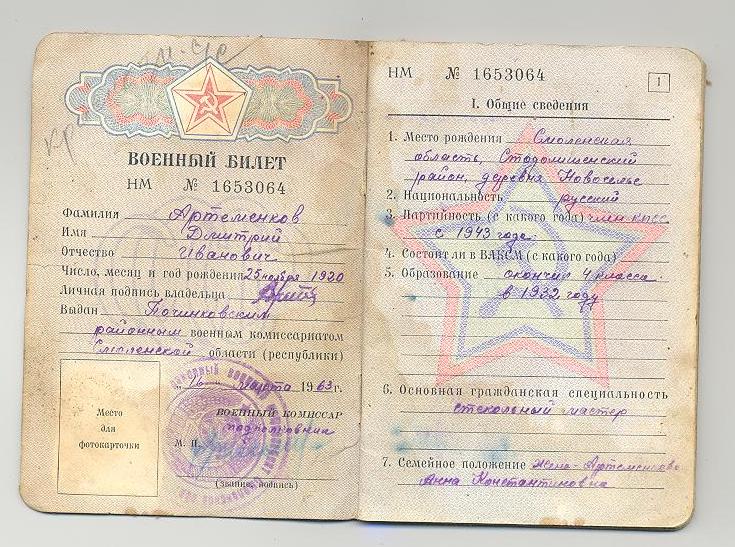 ВОЕННЫЙ БИЛЕТ
НМ № 1653064
Фамилия Артеменков
Имя Дмитрий
Отчество Иванович
Число, месяц и год рождения 25 ноября 1920
Личная подпись владельца
Выдан Починковским
районным военным комиссариатом
Смоленской области (республики)
марта 1963 г.
Место
для
фотокарточки
ВОЕННЫЙ КОМИССАР
подполковник
М. П.
(звание, подпись)
НМ № 1653064
1
I. Общие сведения
1. Место рождения Смоленская
область, Стодолищенский
район, деревня Новоселье
2. Национальность русский
3. Партийность (с какого года) член КПСС
с 1943 года.
4. Состоял ли в ВЛКСМ (с какого года)
5. Образование окончил 4 класса
в 1932 году
6. Основная гражданская специальность
стекольный мастер
7. Семейное положение жена - Артеменкова
Анна Константиновна